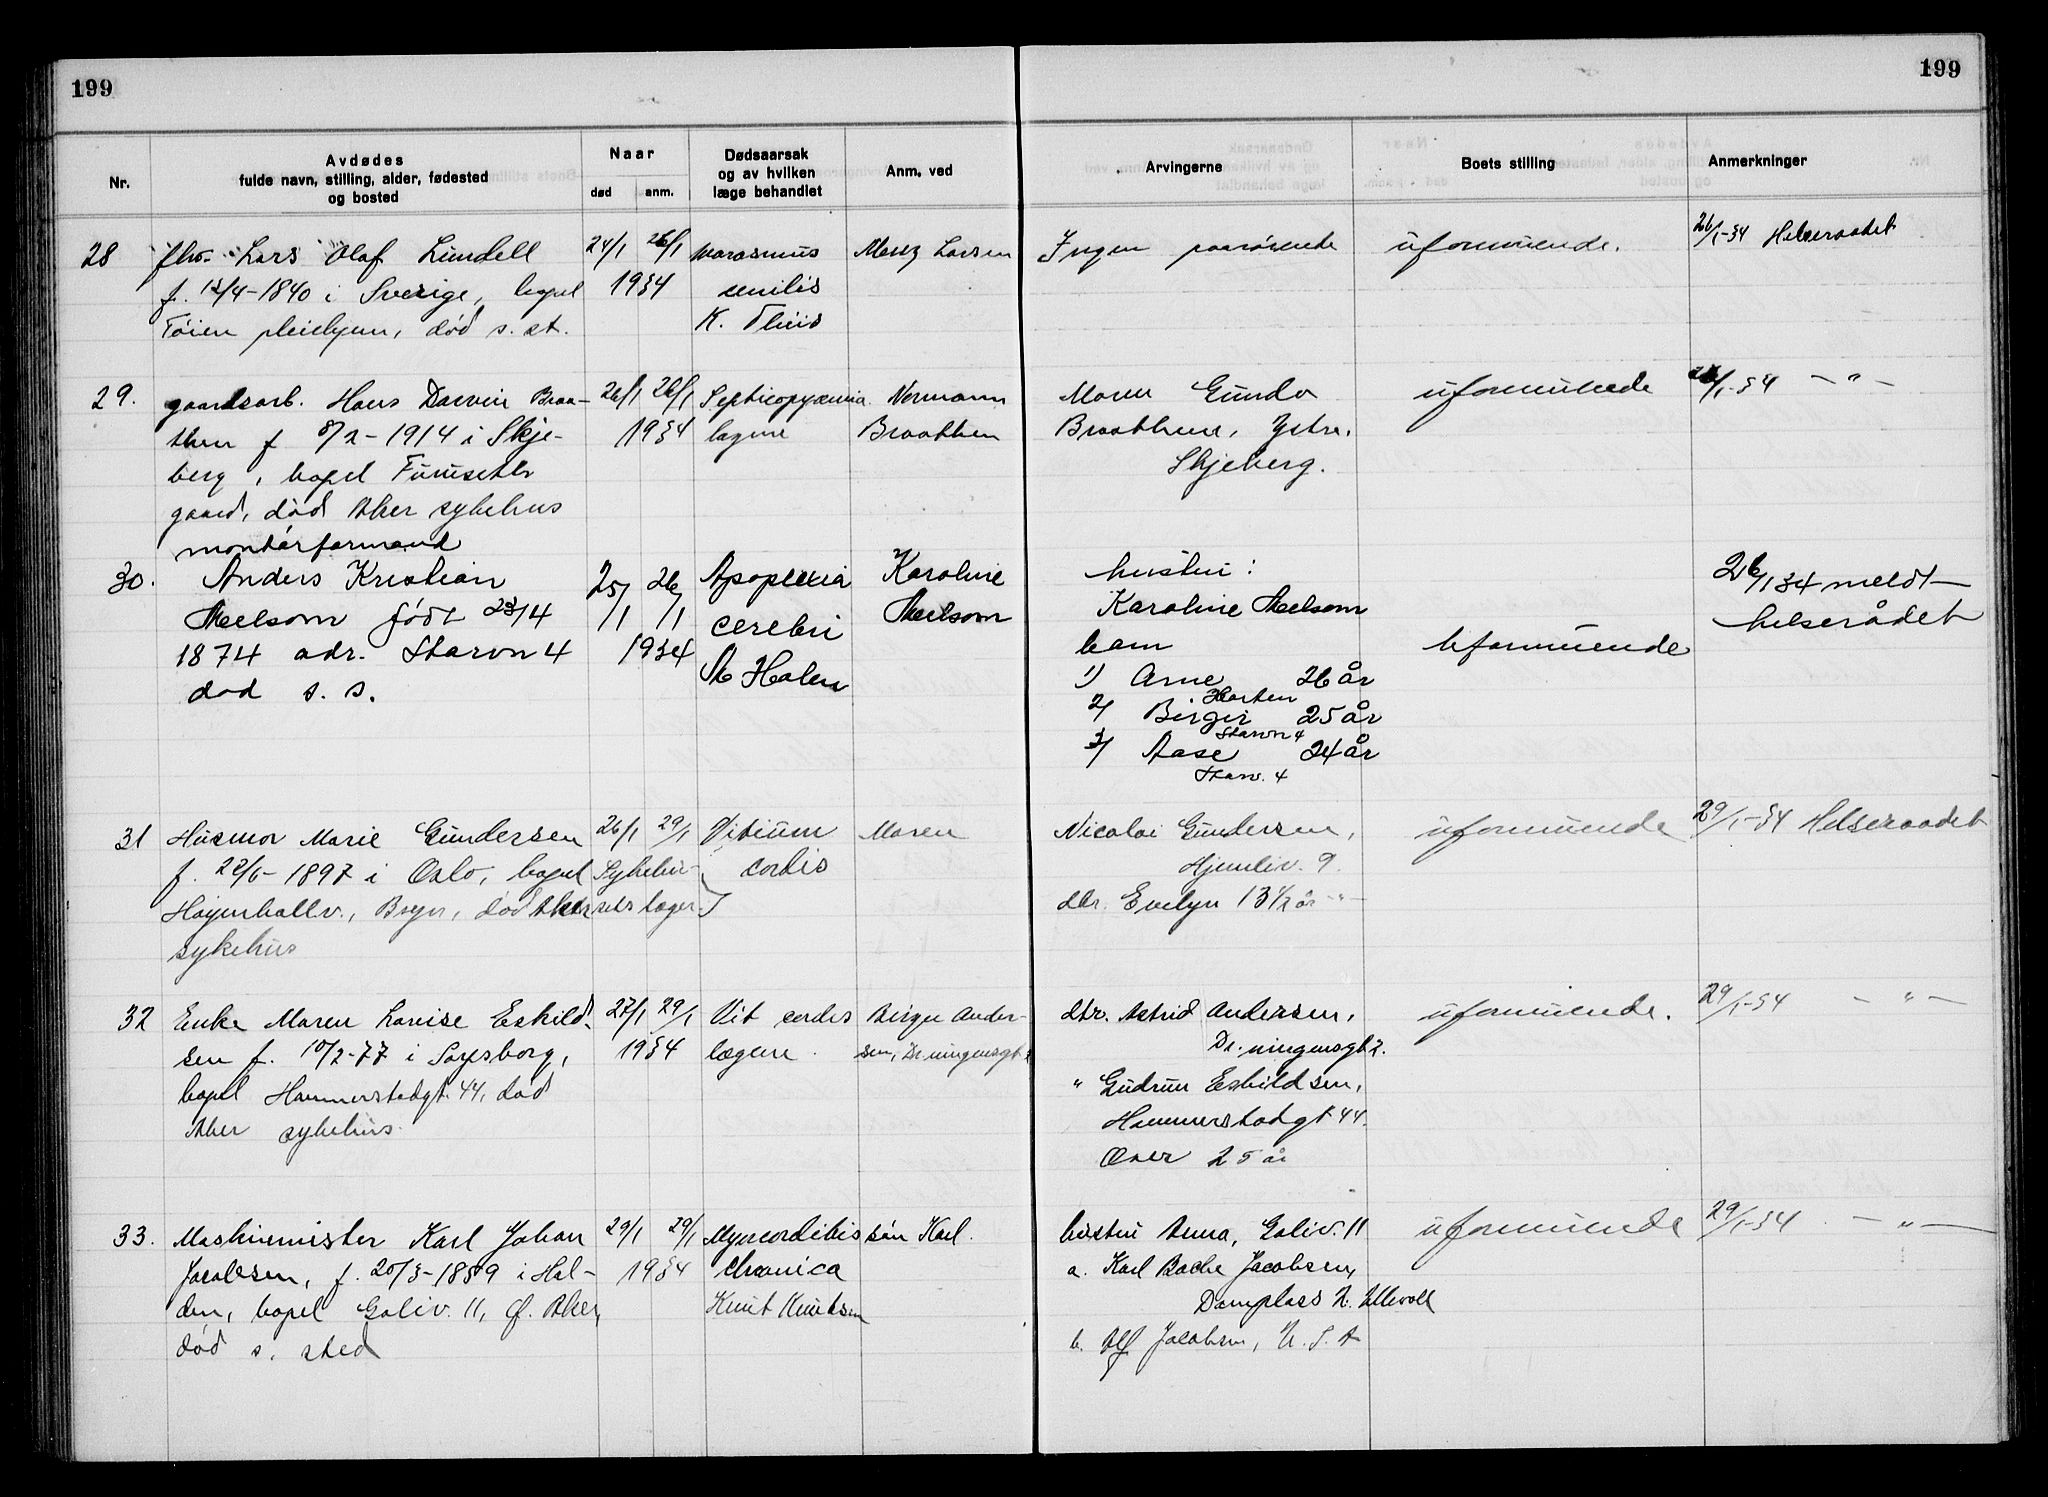 199
199
Nr.
Avdødes
fulde navn, stilling, alder, fødested
og bosted
Naar
død
anm.
Dødsaarsak
og av hvilken
læge behandlet
Anm. ved
Arvingerne
Boets stilling
Anmerkninger
28
fhv. Lars Olof Lundell
f. 13/4-1840 i Sverige, bopel
Tøien pleiehjem, død s. st.
24/1 26/1
1934
marasmus
senilis
K. Theis
Larsen
Ingen paarørende
uformuende.
26/1-34 Helseraadet
29.
gaardsarb. Hans Darvin Braa-
then f 8/2-1914 i Skje-
berg, bopel Furuseth
gaard, død Aker sykehus
26/1 26/1
1934
Septicopyæmia
lægene
Normann
Braathen
Maren Gunda
Braathene, Ystre.
Skjeberg.
uformuende
26/1-34 -"-
30.
montørformand
Anders Kristian
Melsom født 23/4
1874 adr. Starvn 4
død s. s.
25/1 26/1
1934
Apoplexia
cerebri
St Holen
Karoline
Melsom
hustru:
Karoline Melsom
barn
1) Arne 26 år
Horten
2) Birger 25 år
Starvn 4
3) Aase 24 år
Starv. 4
Uformuende
26/1 34 meldt
helserådet
31
Husmor Marie Gundersen
f. 22/6-1897 i Oslo, bopel
Høyenhallv., Bryn, død Aker
sykehus
26/1 29/1
Sykehu-
sets læger
Vitium
cordis
Maren
Nicolai Gundersen,
Hjemliv. 9.
dtr. Evelyn 13 1/2 år -"-
uformuende
29/1-34 Helseraadet
32
Enke Maren Lovise Eskild-
sen f. 10/2-77 i Sarpsborg,
bopel Hammerstadgt. 44, død
Aker sykehus.
27/1 29/1
1934
Vit cordis
lægene.
Birger Ander-
sen, Dr.ningensgt 2
dtr. Astrid Andersen,
Dr.ningensgt 2.
" Gudrun Eskildsen,
Hammerstadgt 44.
Over 25 år
uformuende.
29/1-34 -"-
33.
Maskinmister Karl Johan
Jacobsen, f. 20/3-1859 i Hal-
den, bopel Goliv. 11, Ø. Aker,
død s. sted
29/1 29/1
1934
Myocorditis
chronica
Knut Knutsen
søn Karl.
hustru Anna, Goliv. 11
a. Karl Bache Jacobsen,
Damplass 2. Ullevoll
b. Alf Jacobsen, U. S. A
uformuende
29/1-34 -"-